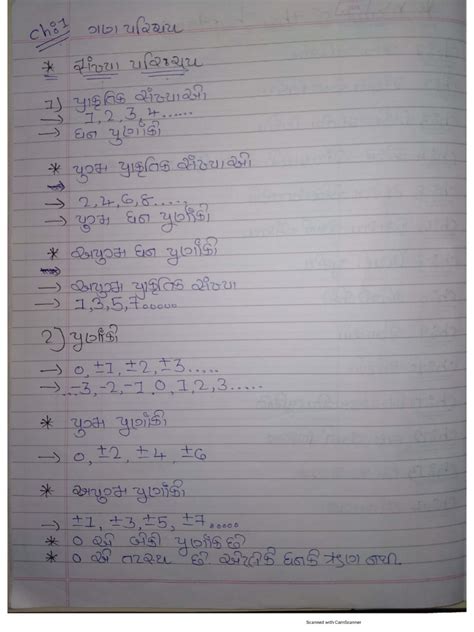 Ch:1 ગણ પરિચય
* સંખ્યા પરિચય
1) પ્રાકૃતિક સંખ્યાઓ
→ 1, 2, 3, 4......
→ ધન પુર્ણાંકો
* યુગ્મ પ્રાકૃતિક સંખ્યાઓ
→ 2, 4, 6, 8.....
→ યુગ્મ ધન પુર્ણાંકો
* અયુગ્મ ધન પુર્ણાંકો
→ અયુગ્મ પ્રાકૃતિક સંખ્યા
→ 1, 3, 5, 7.....
2) પુર્ણાંકો
→ 0, ±1, ±2, ±3.....
→ -3, -2, -1, 0, 1, 2, 3.....
* યુગ્મ પુર્ણાંકો
→ 0, ±2, ±4, ±6
* અયુગ્મ પુર્ણાંકો
→ ±1, ±3, ±5, ±7.....
* 0 એ બેકી પુર્ણાંક છે
* 0 એ તટસ્થ છે. એટલેકે ધનકે ઋણ નથી.
Scanned with CamScanner